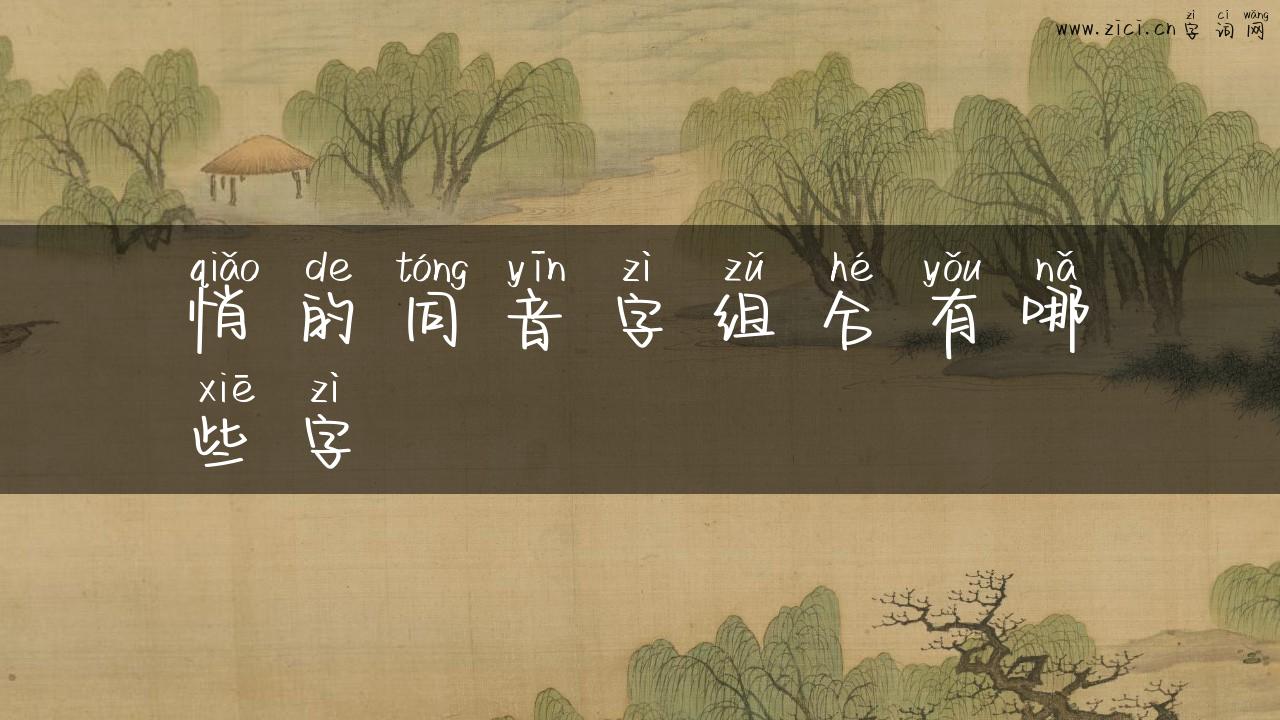 zì cí wǎng
www.zici.cn字词网
qiǎo de tóng yīn zì zǔ hé yǒu nǎ
悄的同音字组合有哪
xiē zì
些字